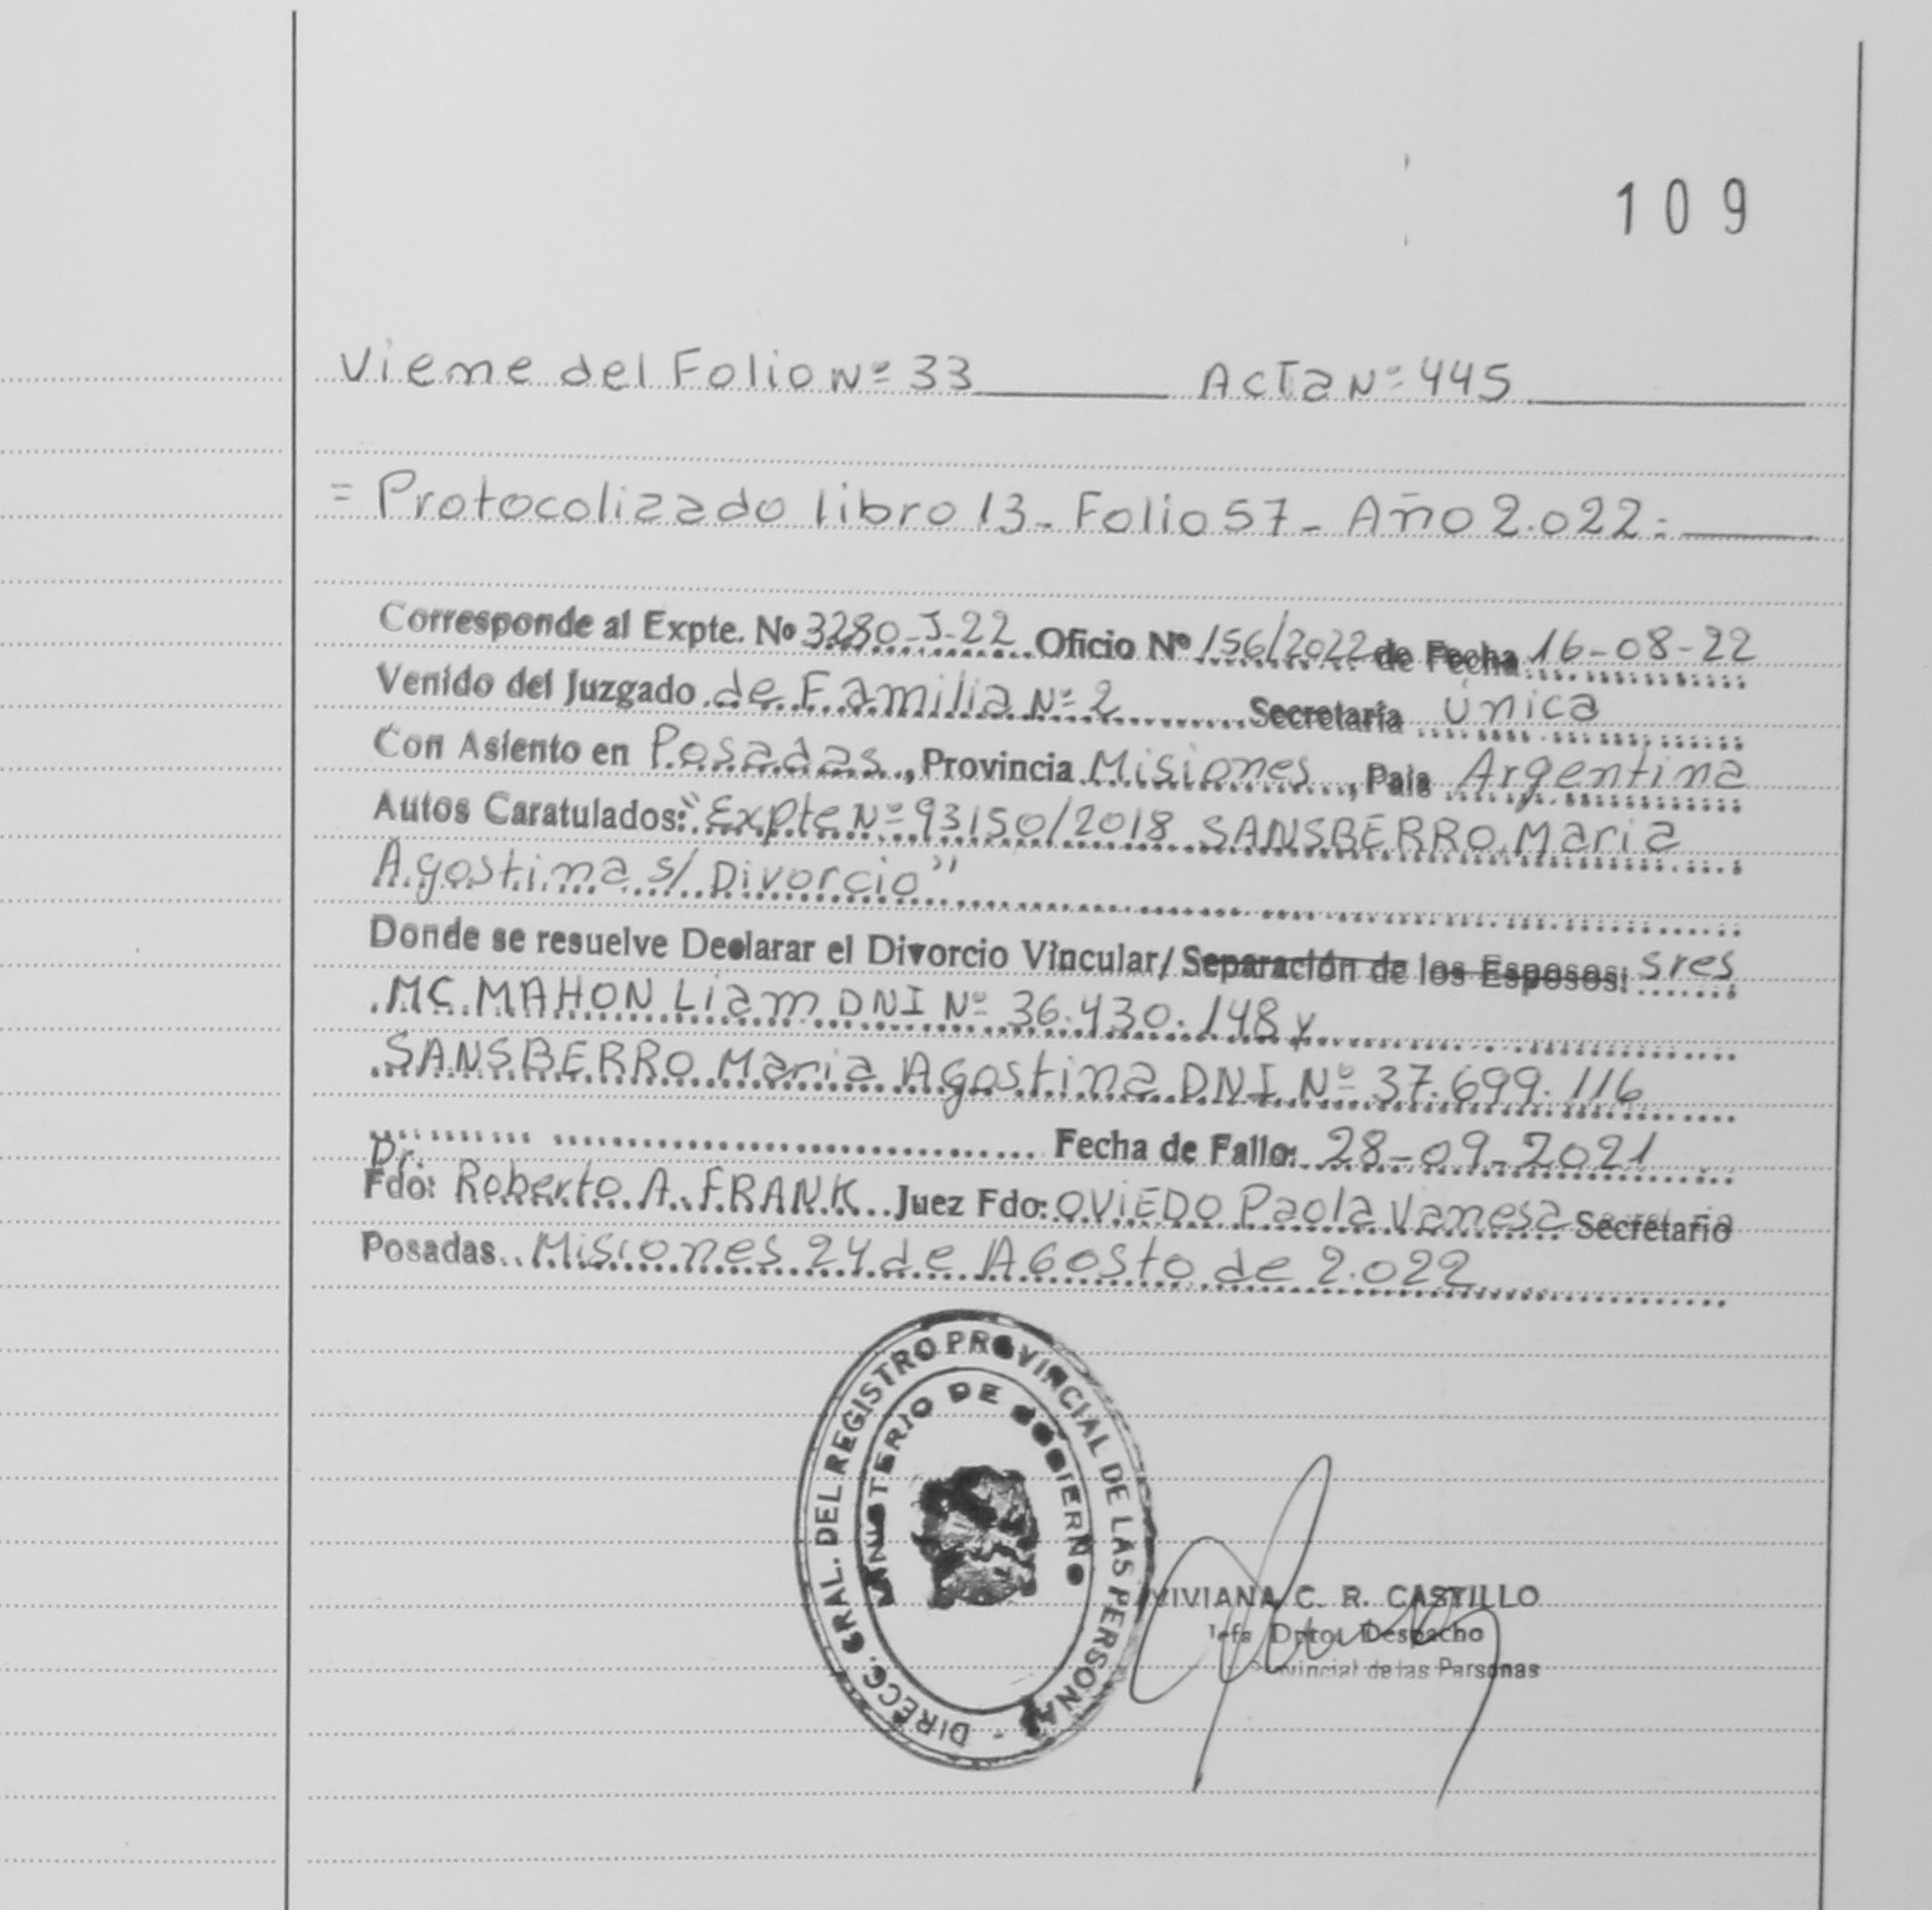 109
Viene del Folio Nº 33 Acta Nº 445
= Protocolizado libro 13 - Folio 57 - Año 2.022 =
Corresponde al Expte. Nº 3280-J-22 Oficio Nº 156/2022 de Fecha 16-08-22
Venido del Juzgado de Familia Nº 2 Secretaría única
Con Asiento en Posadas, Provincia Misiones, País Argentina
Autos Caratulados: "Expte Nº 93150/2018 SANSBERRO Maria
Agostina s/ Divorcio"
Donde se resuelve Declarar el Divorcio Vincular/ Separación de los Esposos: sres
MC MAHON Liam DNI Nº 36.430.148 y
SANSBERRO Maria Agostina DNI Nº 37.699.116
Fecha de Fallo: 28-09-2021
Dr.
Fdo: Roberto A. FRANK Juez Fdo: OVIEDO Paola Vanesa Secretario
Posadas Misiones 24 de AGosto de 2.022
DIRECC. GRAL. DEL REGISTRO PROVINCIAL DE LAS PERSONAS -
MINISTERIO DE GOBIERNO
VIVIANA C. R. CASTILLO
Jefa Dpto. Despacho
Provincial de las Personas